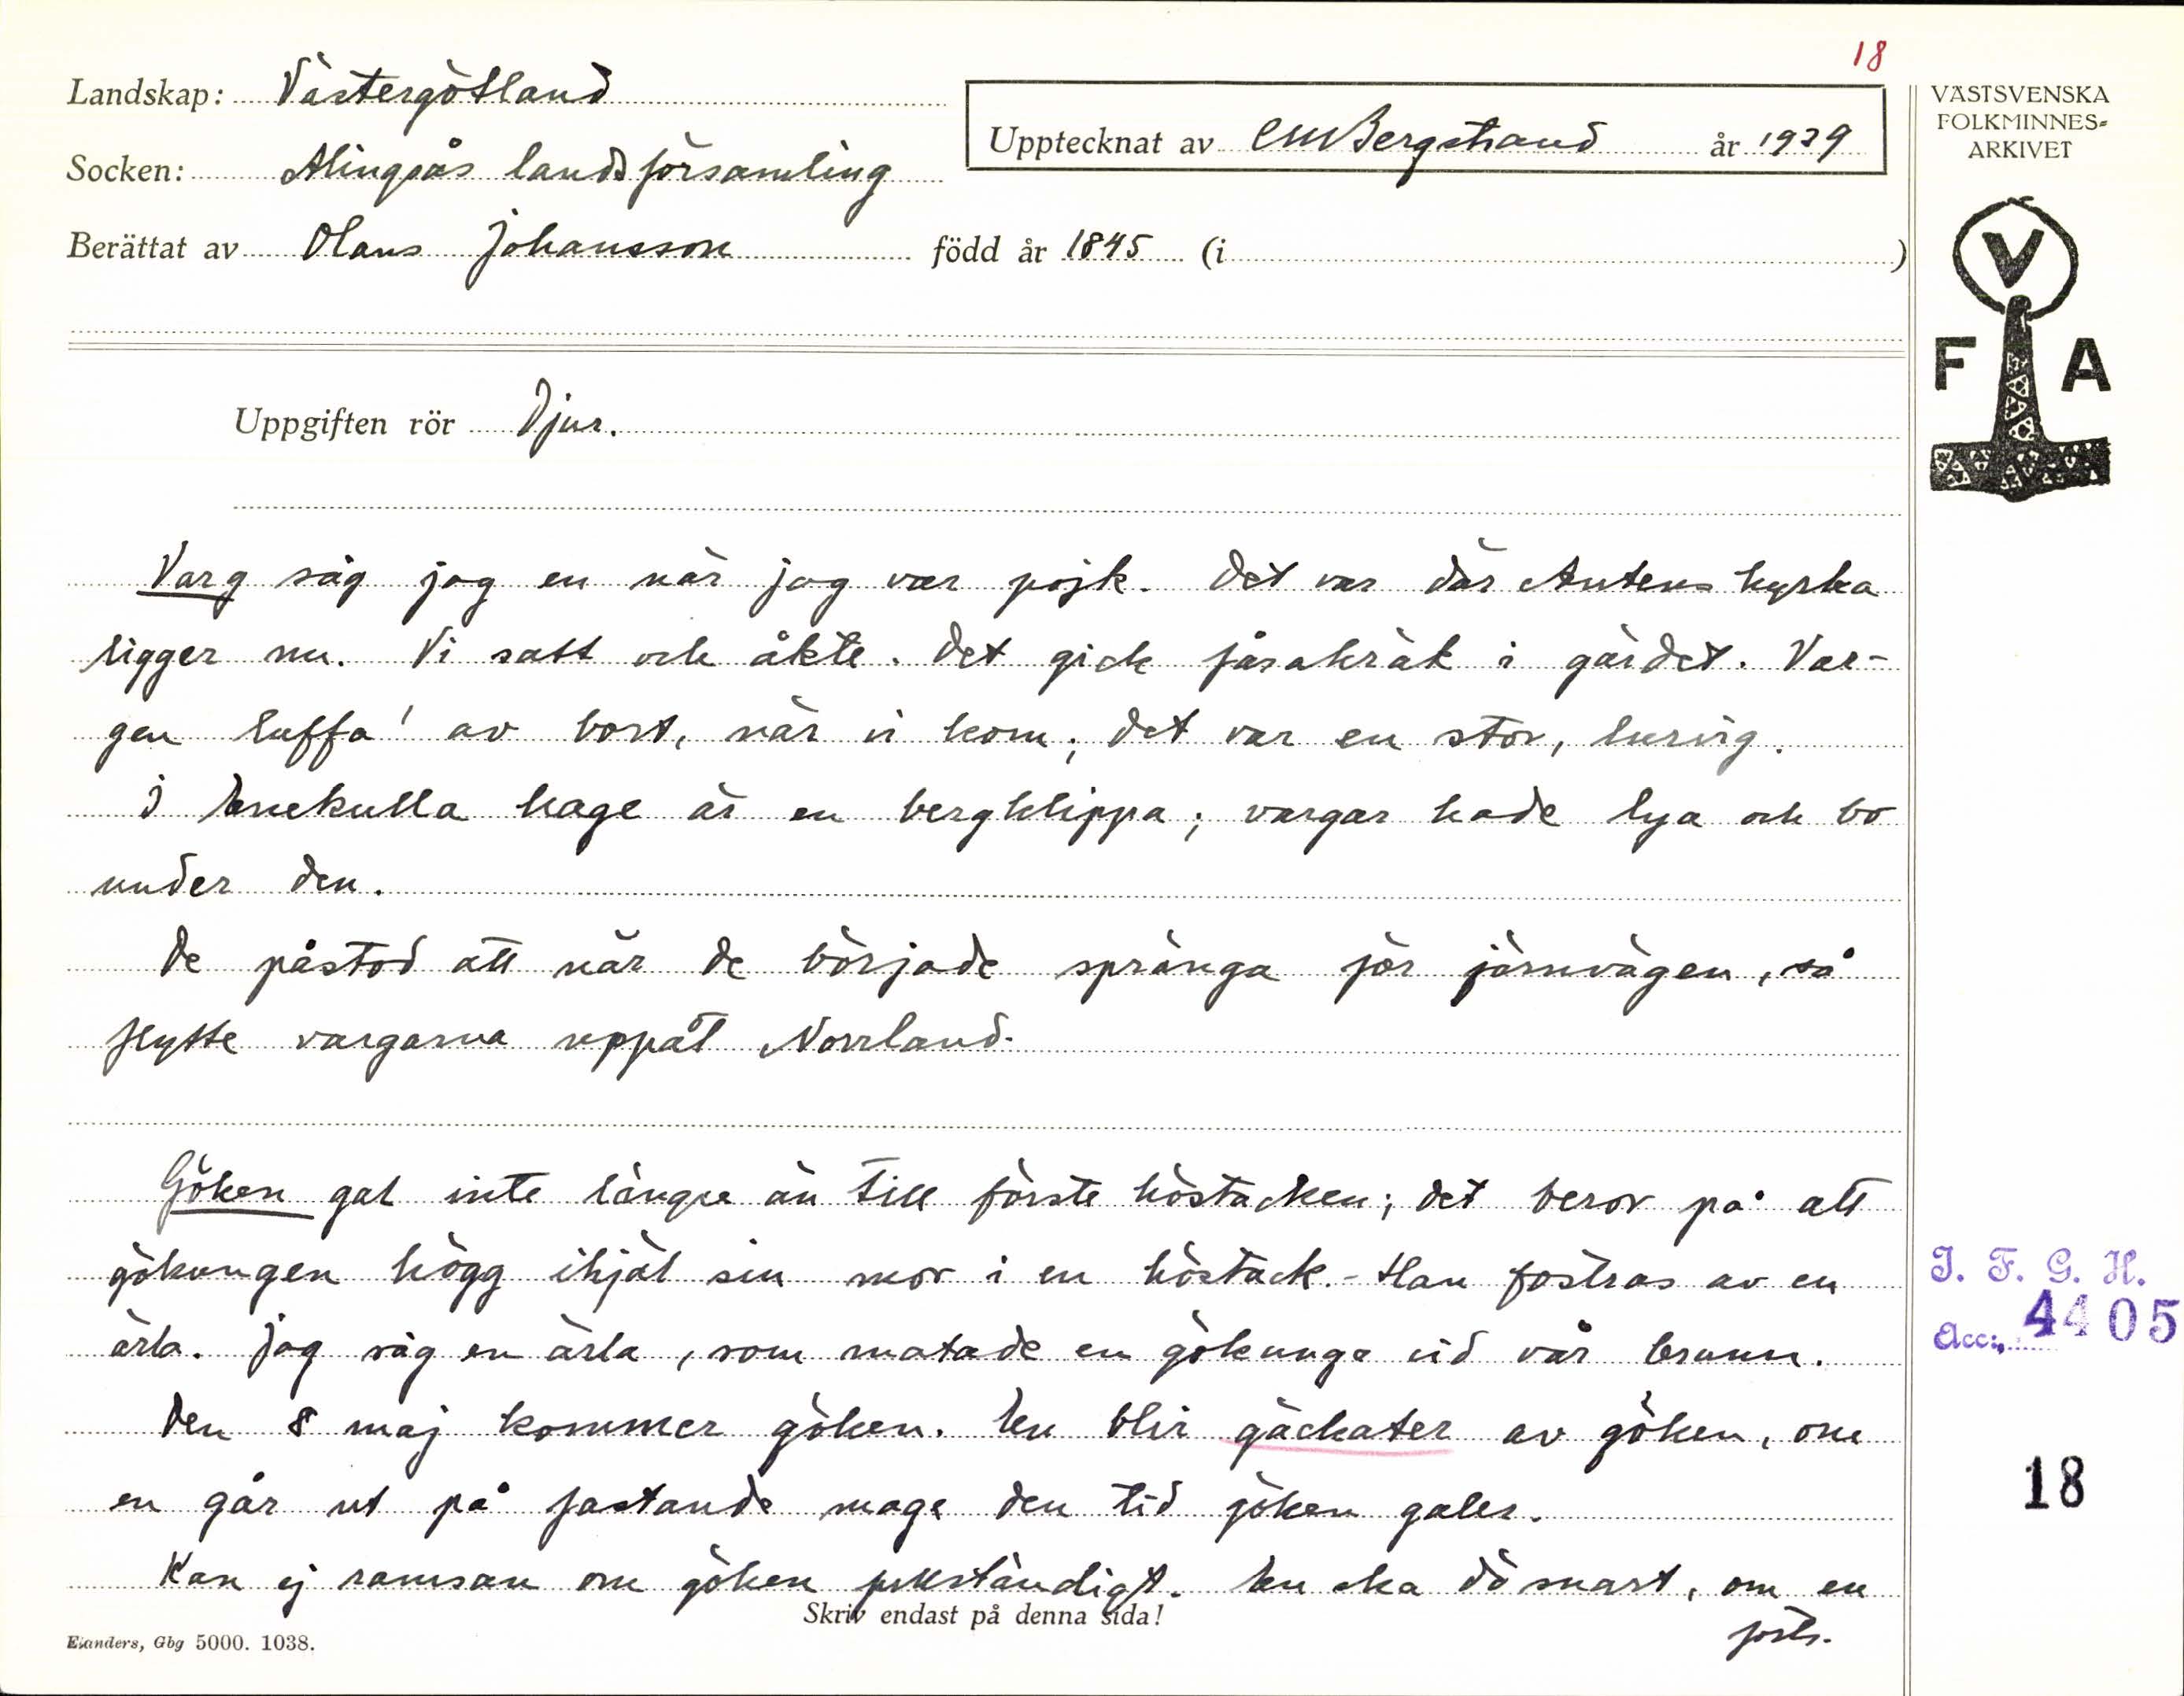 18
Landskap: Västergötland
Upptecknat av CMBergstrand år 1939
VÄSTSVENSKA
FOLKMINNES=
ARKIVET
Socken: Alingsås landsförsamling
Berättat av Olaus Johansson född år 1845 (i )
V
F A
Uppgiften rör Djur.
Varg såg jag en när jag var pojk. Det var där Antens kyrka
ligger nu. Vi satt och åkte. Det gick fåsakräk i gärdet. Var-
gen luffa' av bort, när vi kom; det var en stor, lurvig.
I Enekulla hage är en bergklippa; vargar hade lya och bo
under den.
De påstod att när de började spränga för järnvägen, så
flytte vargarna uppåt Norrland.
Göken gal inte längre än till förste höstacken; det beror på att
gökungen högg ihjäl sin mor i en höstack. - Han fostras av en
ärla. Jag såg en ärla, som matade en gökunge vid vår brunn.
Den 8 maj kommer göken. En blir gäckater av göken, om
en går ut på fastande mage den tid göken galer.
Kan ej ramsan om göken fullständigt. En ska dö snart, om en
forts.
Skriv endast på denna sida!
Elanders, Gbg 5000. 1038.
I. F. G. H.
Acc:. 4405
18